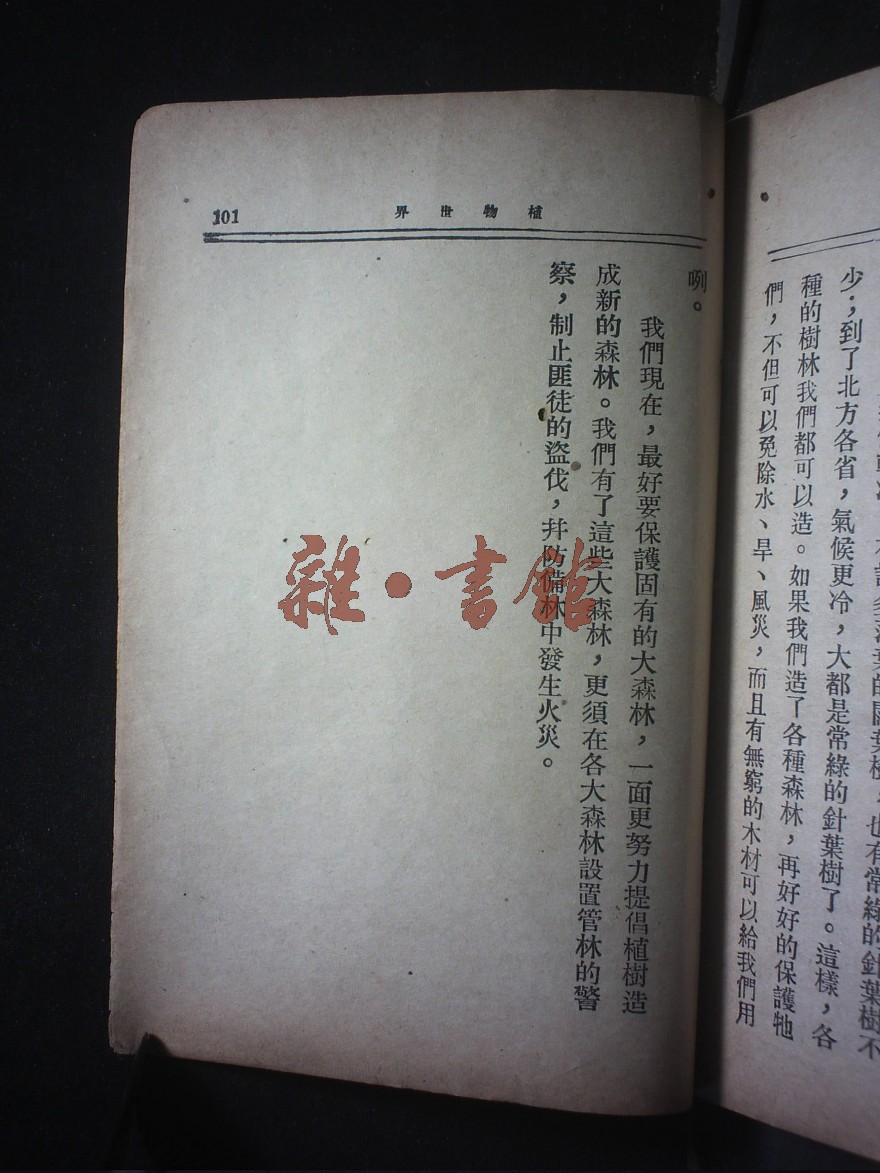 少；到了北方各省，氣候更冷，大都是常綠的針葉樹了。這樣，各
種的樹林我們都可以造。如果我們造了各種森林，再好好的保護牠
們，不但可以免除水、旱、風災，而且有無窮的木材可以給我們用
植物世界
101
咧。
我們現在，最好要保護固有的大森林，一面更努力提倡植樹造
成新的森林。我們有了這些大森林，更須在各大森林設置管林的警
察，制止匪徒的盜伐，幷防備林中發生火災。
雜·書館